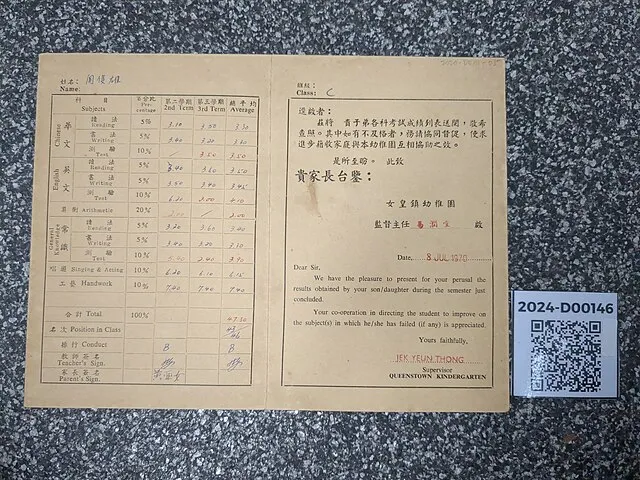 姓名:
Name:
科 目
Subjects
百分比
Percentage
第二學期
2nd Term
第三學期
3rd Term
總平均
Average
Chinese
華文
讀 法
Reading
5%
書 法
Writing
5%
3.40
測 驗
Test
10%
3.50
English
英文
讀 法
Reading
5%
書 法
Writing
5%
測 驗
Test
10%
算術 Arithmetic
20%
2.00
General Knowledge
常識
讀 法
Reading
5%
3.20
3.60
3.40
書 法
Writing
5%
3.40
測 驗
Test
10%
唱遊 Singing & Acting
10%
6.20
6.10
6.15
工藝 Handwork
10%
7.40
7.40
7.40
合計 Total
100%
47.30
名次 Position in Class
操行 Conduct
B
B
教師簽名
Teacher's Sign.
家長簽名
Parent's Sign.
班級:
Class: C
逕啟者:
茲將 貴子弟各科考試成績列表送閱,敬希
查照。其中如有不及格者,務請協同督促,使求
進步藉收家庭與本幼稚園互相協助之效。
是所至盼。 此致
貴家長台鑒:
女皇鎮幼稚園
監督主任 易潤堂 啟
Date, 8 JUL 1970
Dear Sir,
We have the pleasure to present for your perusal the
results obtained by your son/daughter during the semester just
concluded.
Your co-operation in directing the student to improve on
the subject(s) in which he/she has failed (if any) is appreciated.
Yours faithfully,
JEK YEUN THONG
Supervisor
QUEENSTOWN KINDERGARTEN
2024-D00146